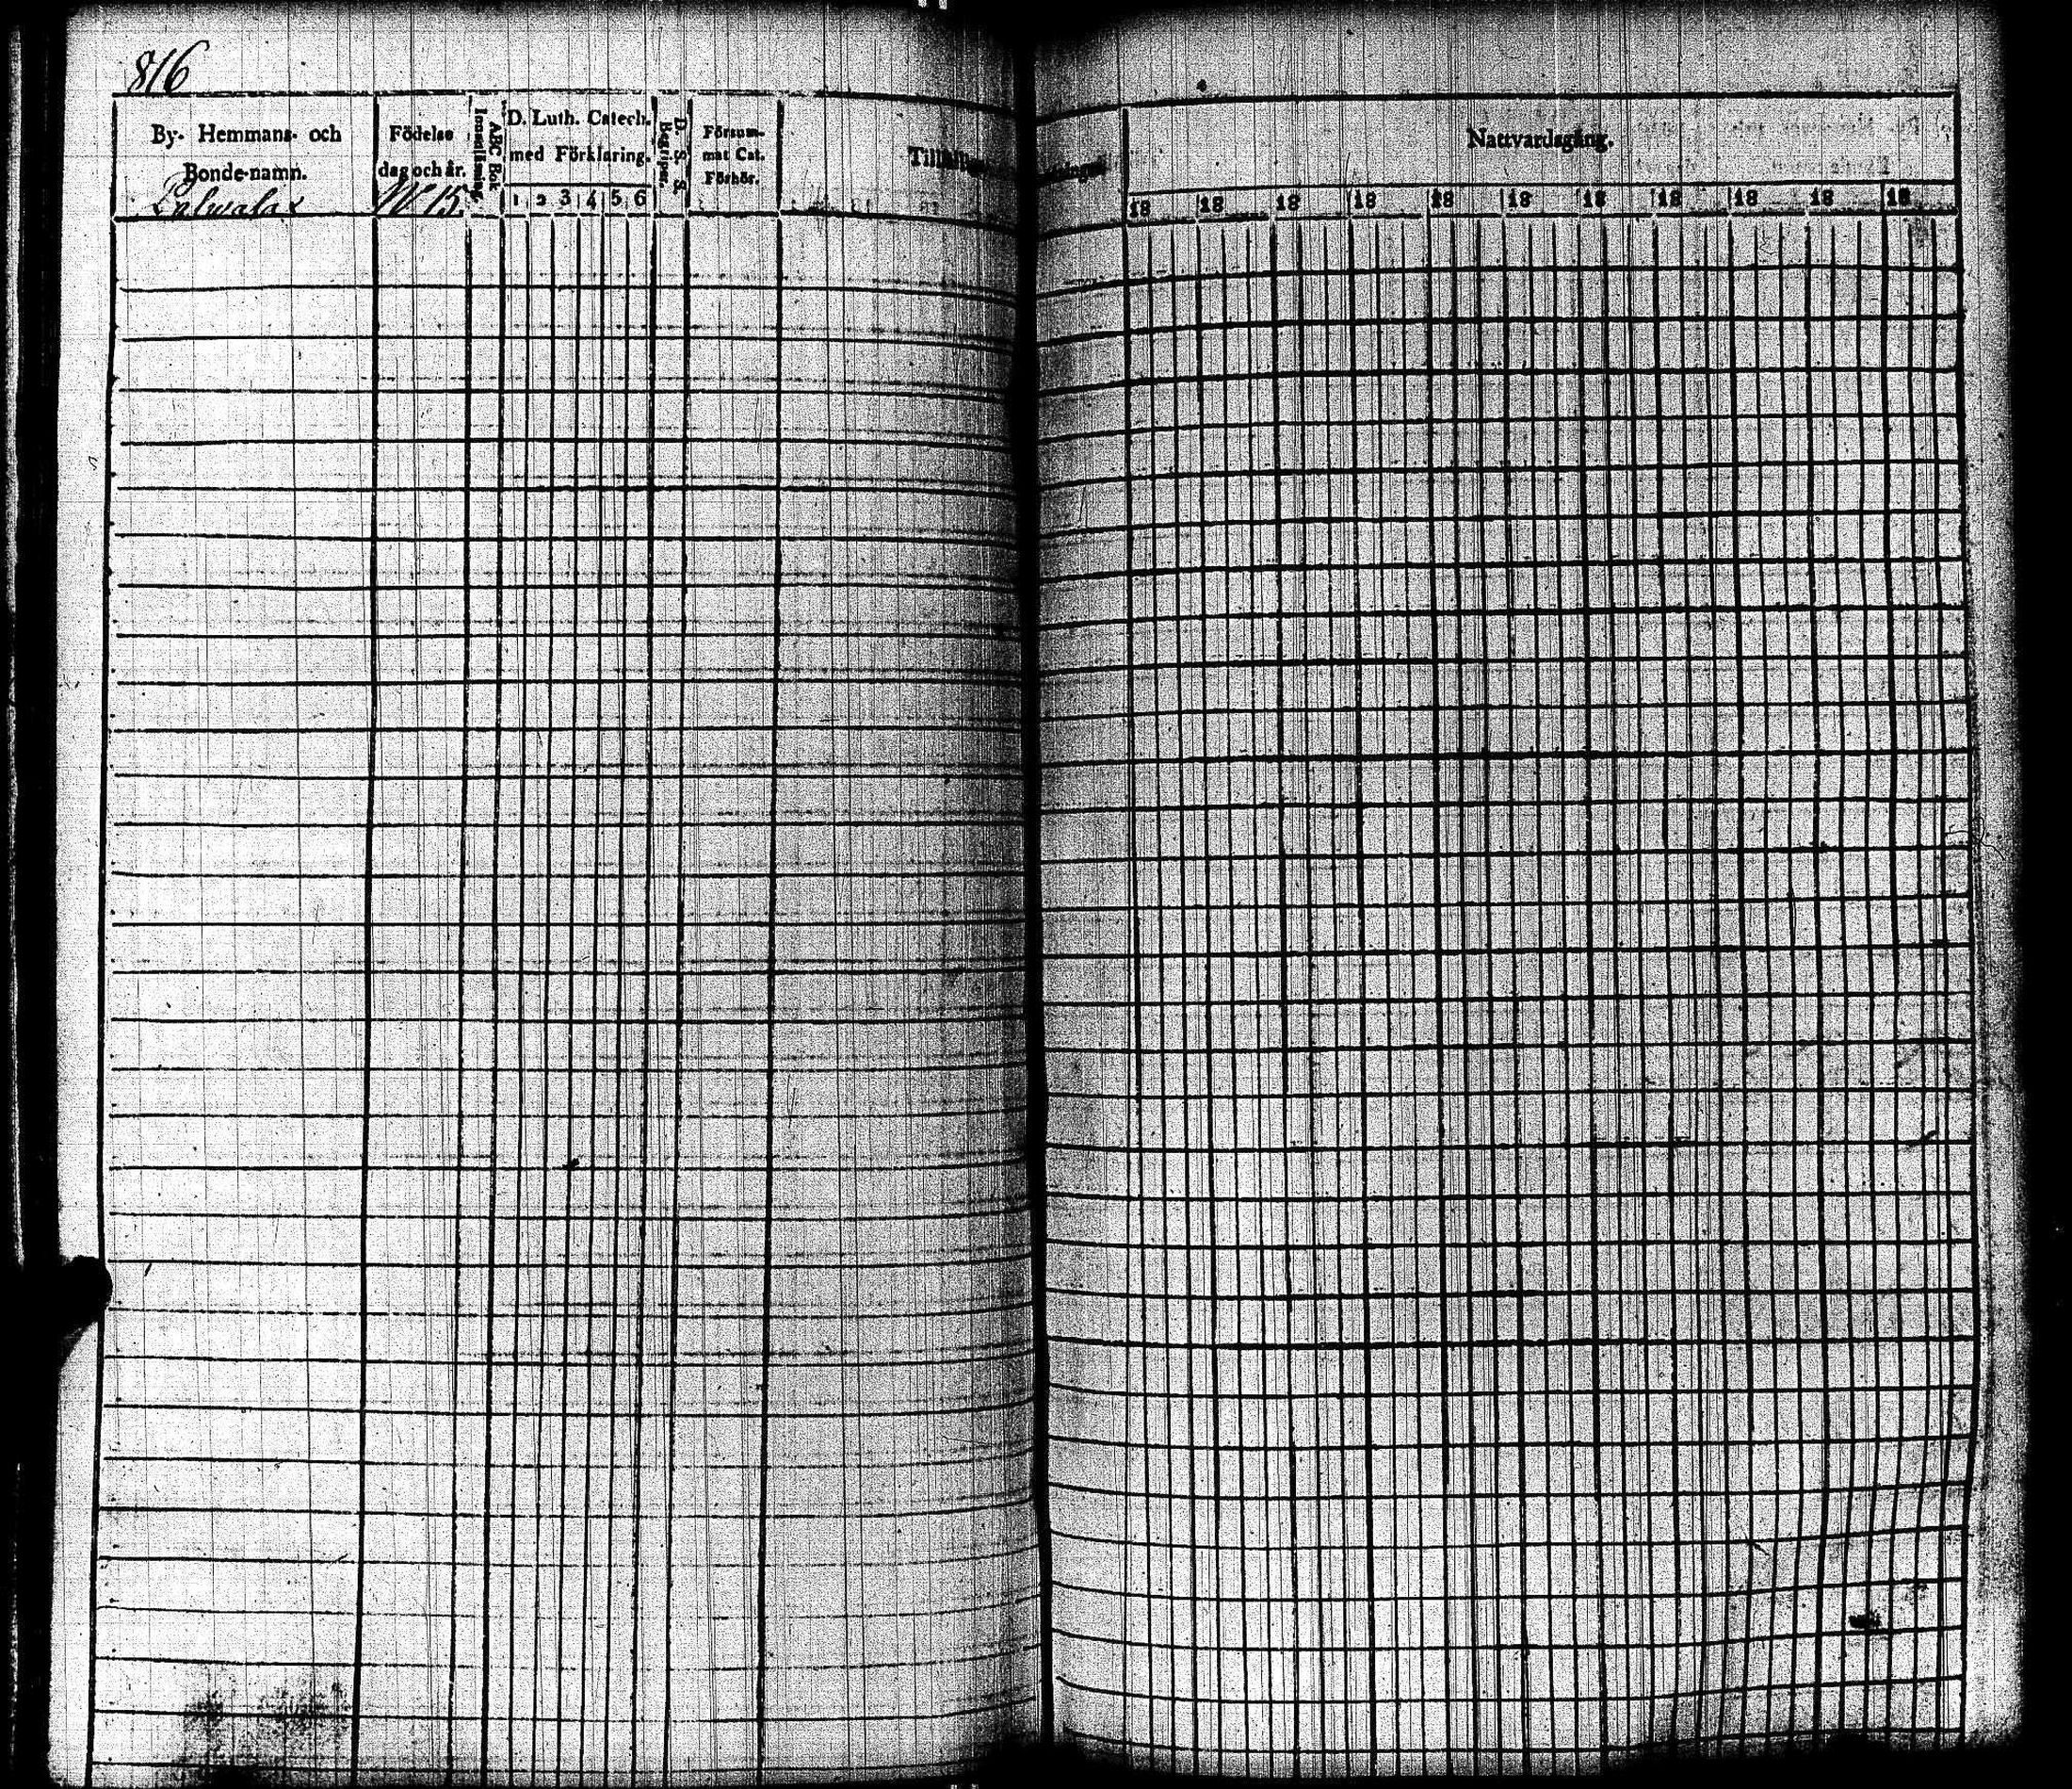 816
By- Hemmans- och
Bonde-namn.
Födelse
dag och år.
N 15.
ABC Bok
Innanläsning.
D. Luth. Catech.
med Förklaring.
1 2 3 4 5 6
D. S. S.
Begriper.
Försum-
mat Cat.
Förhör.
Nattvardsgång.
18 18 18 18 18 18 18 18 18 18 18